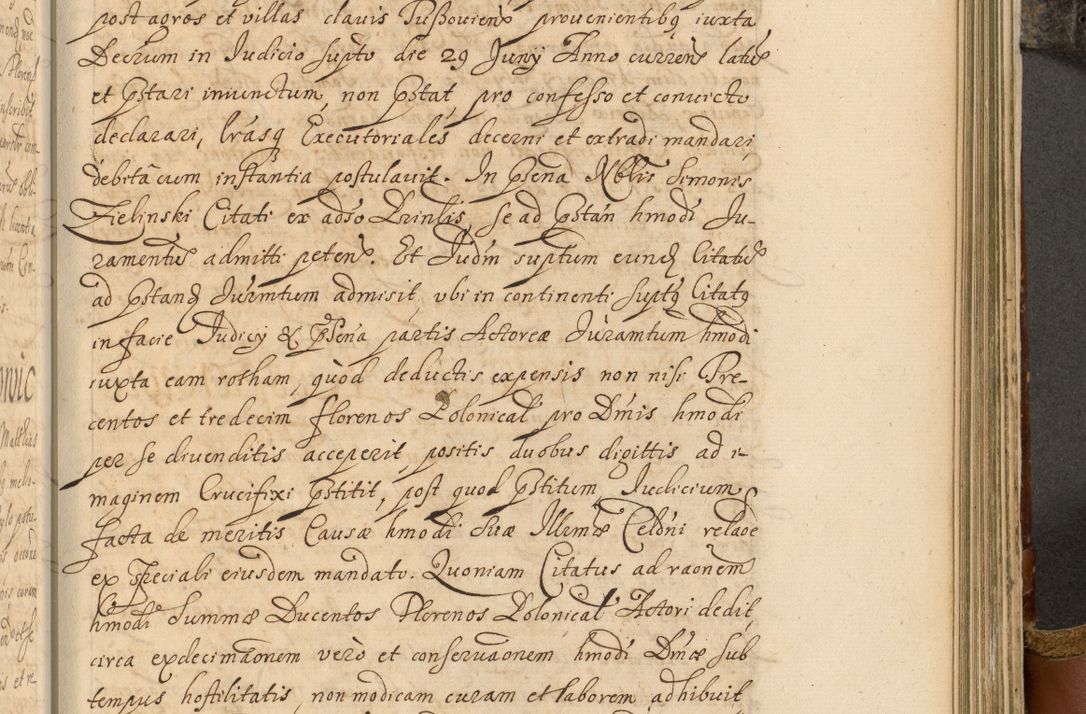 post agros et villas clavis Pussoviens provenientibq iuxta
Decrum in Judicio supto die 29 Juny Anno currens latus
et pstari iniunctum, non pstat, pro confesso et convicto
declarari, lrasq Executoriales decerni et extradi mandari
debita cum instantia postulavit. In pseña Nblis Simonis
Zielinski Citati ex adso Prinlis, se ad pstan hmodi Ju-
ramentũ admitti petens. Et Judm suptum eund Citatũ
ad pstand Jurmtum admisit, ubi in continenti suptq Citatq
in facie Judicy & pseña partis Actoreæ Juramtum hmodi
iuxta eam rotham, quòd deductis expensis non nisi Tre-
centos et tredecim florenos Polonical pro Dmis hmodi
per se divenditis acceperit, positis duobus digittis ad i-
maginem Crucifixi pstitit, post quod pstitum Judicium
facta de meritis Causæ hmodi suæ Illrmæ Celdni relaõe
ex speciali eiusdem mandato. Quoniam Citatus ad raonem
hmodi summæ Ducentos Florenos Polonical Actori dedit
circa exdecimãonem verò et conservãonem hmodi Dmæ sub
tempus hostilitatis, non modicam curam et laborem adhibuit